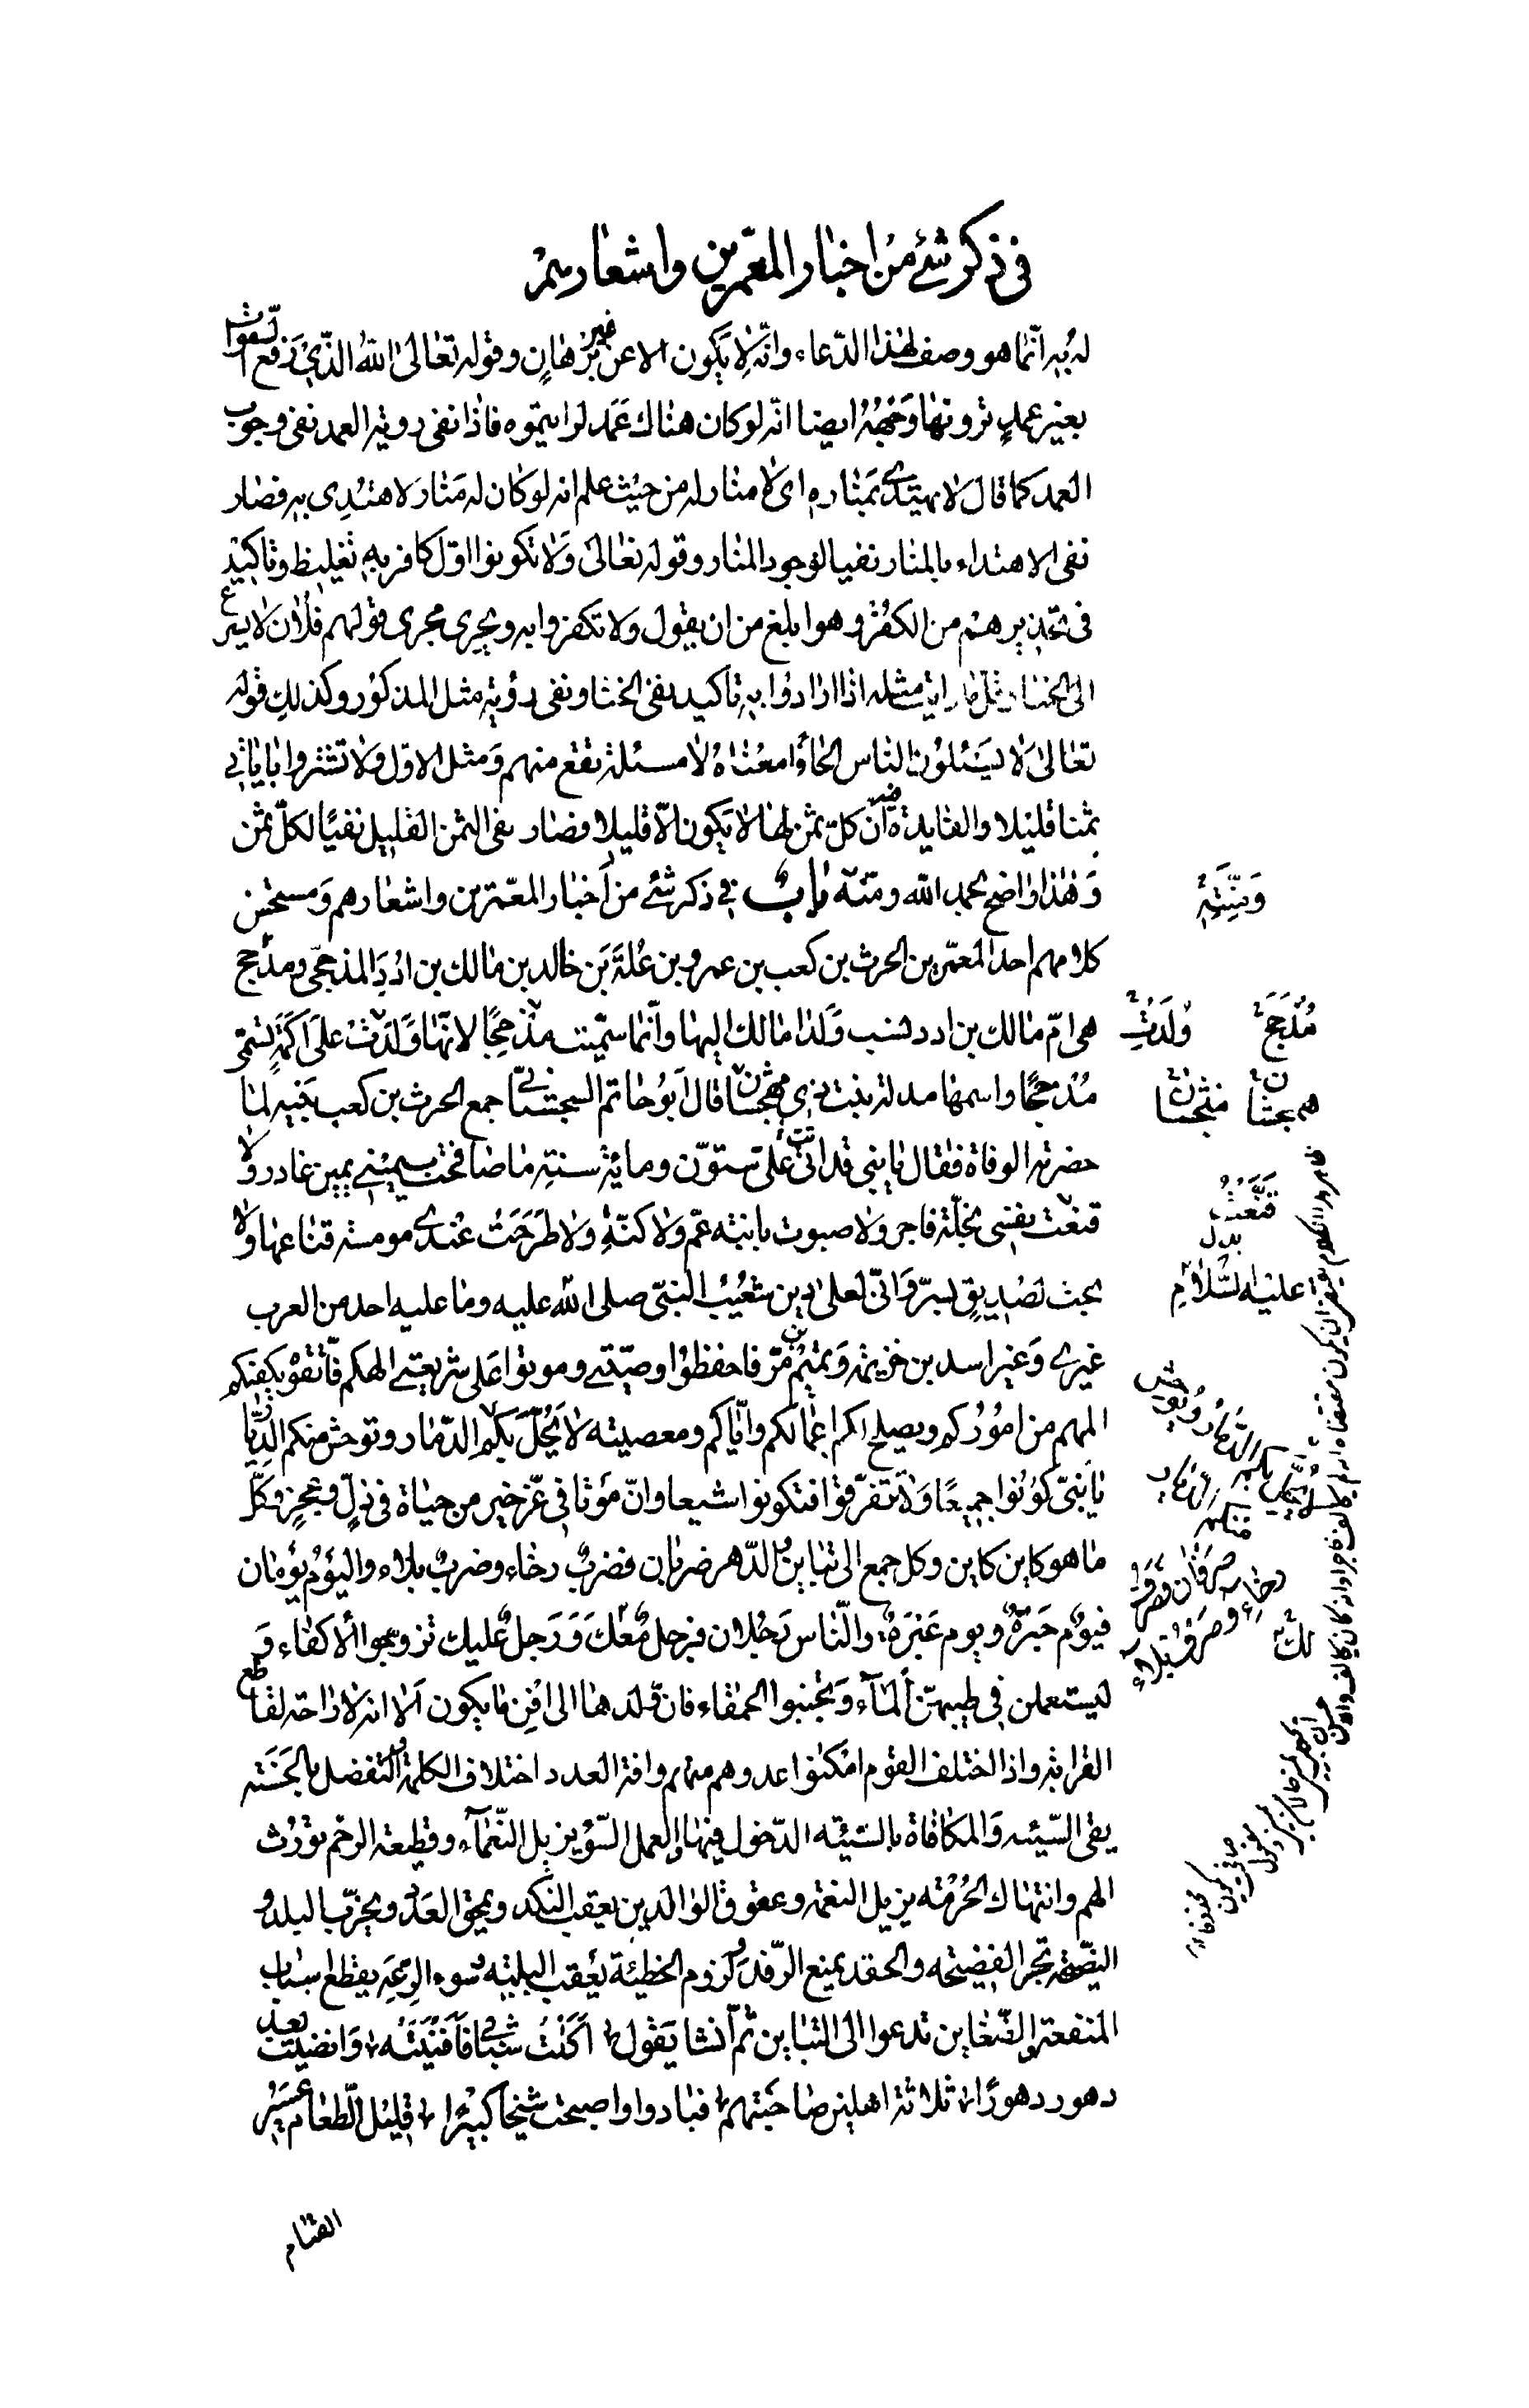 في ذكر شئ من اخبار المعمرين واشعارهم
له به انّما هو وصف لهٰذا الدّعاء وانّه لا يكون الا عن غير برهان وقوله تعالى اللهُ الّذي رَفَع السّموات
بغير عمدٍ ترونها وَجهُهُ ايضا انّه لو كان هناك عَمَد لرايتموه فاذا نفى روية العمد نفى وجوب
العمد كما قال لا يهتدى بمَناره اى لا منار له من حيث علم انه لو كان له مَنار لاهتُدِى به فصار
نفى الاهتداء بالمنار نفيا لوجود المنار وقوله تعالى وَلا تكونوا اوّل كافر به تغليظ وتاكيد
فى تحذيرهم من الكفر وهو ابلغ من ان يقول ولا تكفروا به ويجرى مجرى قولهم فلان لا يسرع
الى الخنا وقلّ ما رايت مثله اذا ارادوا به تاكيد نفى الخنا ونفى رؤية مثل المذكور وكذلك قوله
تعالى لا يسَئلون الناس الحافا معناه لا مسئلة تقع منهم وَمثل الاوّل ولا تشتروا باياتي
ثمنا قليلا والفايدة انّ كلّ ثمن لها لا يكون الّا قليلا فصار نفى الثمن القليل نفيًا لكلّ ثمن
وَهٰذا واضح بحمد الله ومنّه بابٌ في ذكر شئ من اخبار المعمّرين واشعارهم وَمستحسن
كلامهم احد المعمّرين الحرث بن كعب بن عمرو بن عُلَة بَن خالد بن مالك بن ادَد المذحجى ومذحج
هى امّ مالك بن ادد نسب وَلد مالك اليها وانّما سمّيت مذحِجًا لانّها وَلدت على اكَمَةٍ تسمّى
مذحجًا واسمها مدلة بنت ذى مهجشان قال اَبو حاتم السجستانى جمع الحرث بن كعب بَنيه لمّا
حضرته الوفاة فقال يا بني قد اتت علىّ ستوّن ومائة سنة ما صافحت بيمينى يمين غادر ولا
قنعت نفسى بخلّة فاجر ولا صبوت بابنة عمّ ولا كنّةٍ ولا طَرَحَت عندى مومسة قناعها ولا
بحت لصديق بسرّ وَانّى لعلى دين شعيب النبىّ صلى الله عليه وما عليه احد من العرب
غيرى وَغير اسد بن خزيمة وَتميم بن مرّ فاحفظوا وصيّتى وموتوا عَلى شريعتى الهكم فاتّقوه يكفكم
المهم من اموركم ويصلح لكم اعمالكم وايّاكم ومعصيته لا يَحُلّ بكم الدّمار وتوحش منكم الديار
يا بَنىّ كونوا جميعًا وَلا تتفرّقوا فتكونوا شيعا وانّ مَوتا في عزّ خير من حياة فى ذلٍّ وعجزٍ وكلّ
ما هو كاين كاين وكل جمع الى تباين الدّهر ضربان فضربٌ رخاء وضربٌ بلاء واليوم يومان
فيومٌ حَبَرَة ويوم عَبَرَة والنّاس رَجُلان فرجل معَكَ وَرَجل عليك تزوّجوا الاكفاء وَ
ليستعملن في طيبهنّ الماء وَتجنبوا الحمقاء فان وَلدها الى افن ما يكون اَلا انه لا راحة لقاطع
القرابة واذا اختلف القوم امكنوا عدوهم منهم وافة العدد اختلاف الكلمة والتفضل بالحَسَنة
يقى السّيئه وَالمكافاة بالسّيّئه الدّخول فيها والعمل السّوء يزيل النّعماء وقطيعة الرّحم تورث
الهم وانتهاك الحُرمَة يزيل النعمة وعقوق الوالدين يعقب النكد ويمحق العَدَد ويخرّب البلد و
النصيحة تجر الفضيحه والحقد يمنع الرّفد ولزوم الخطيئة يعقب البليّه وسوء الرِعَة يقطع اسباب
المنفعة والضّغاين تدعوا الى التباين ثمّ انشا يقول اكَلتُ شَبابى فاَفنَيتُه وَافنيت بعد
دهور دهورًا ثلاثة اهلين صاحَبتهم فبادوا واصبحت شيخا كبيرًا قليل الطّعام عسير
القيام
وَبيّنَة
مُذحَج
وُلدَت
همجشان
منجشان
قَنَّعَتُ
بدل
عليه السّلام
رخاء وصرف بلاء
لك